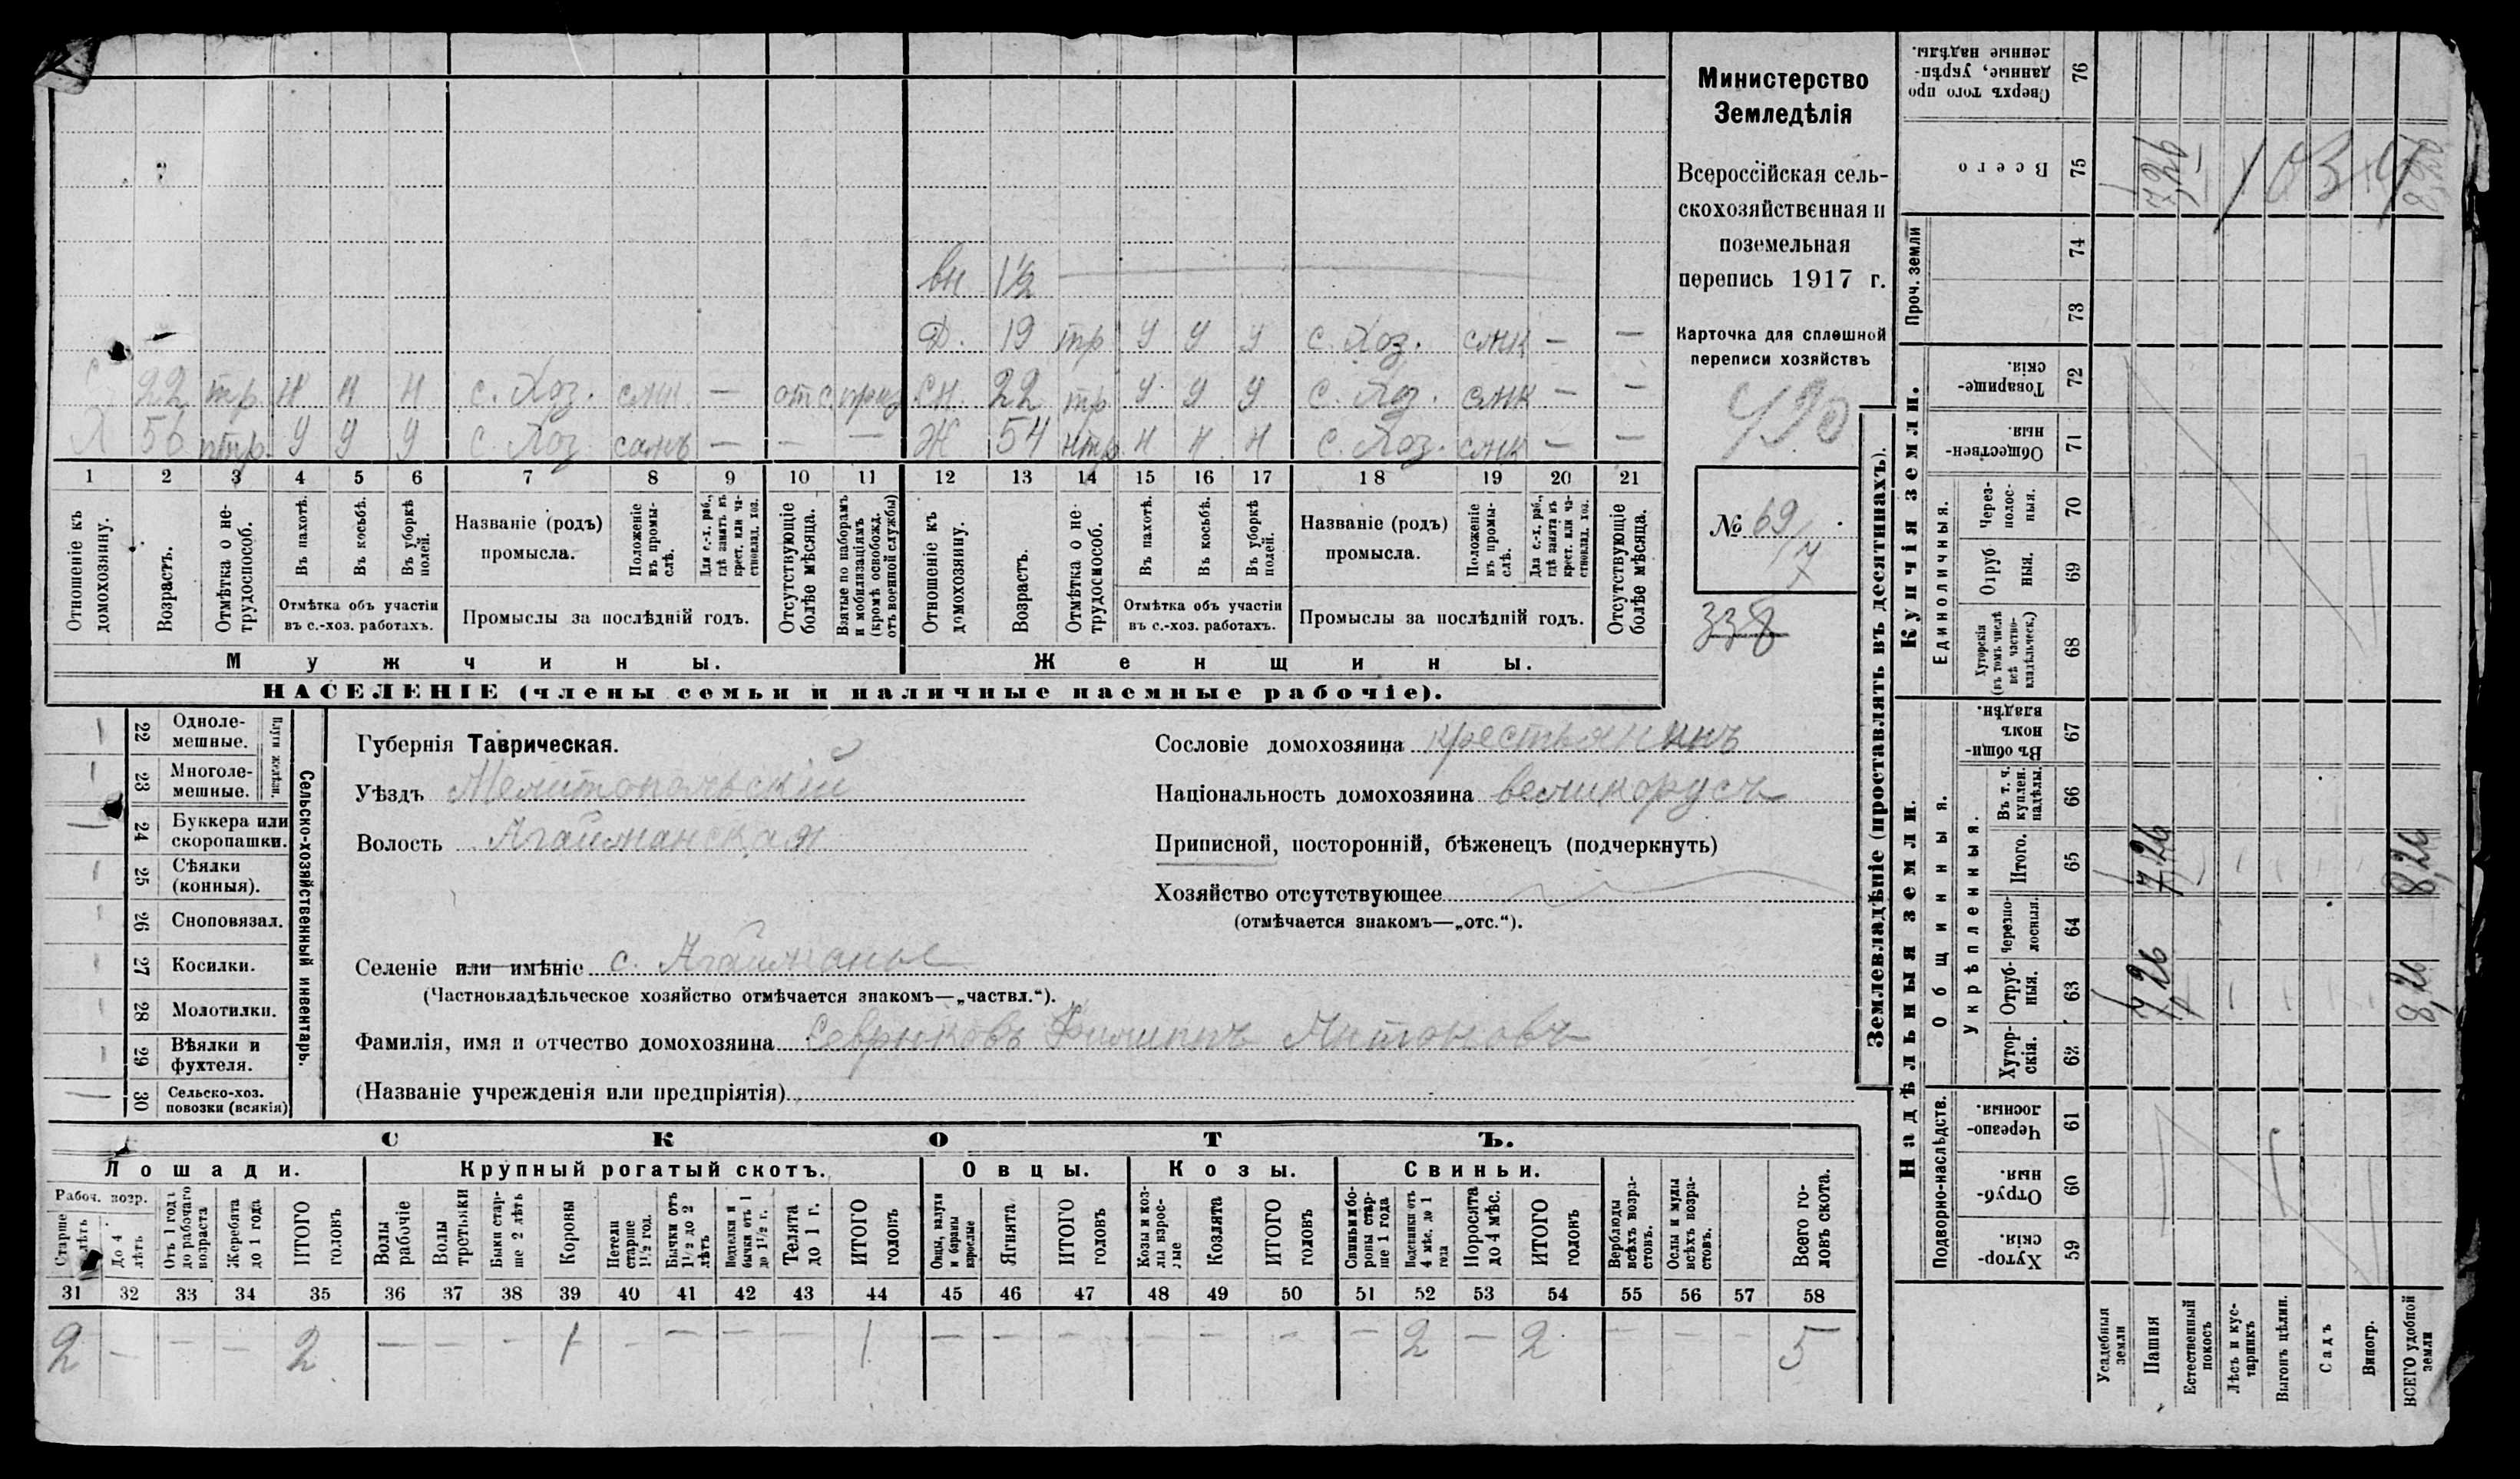 Министерство
Земледѣлія
Всероссійская сель-
скохозяйственная и
поземельная
перепись 1917 г.
Карточка для сплошной
переписи хозяйствъ
№ 69/7
338
вн 1½
Д. 19 тр у у у с. Хоз. слнк — —
С 22 тр. н н н с. Хоз. — отс. сн. 22 тр у у у с. Хоз. слнк — —
Х 56 птр. у у у с. Хоз — — — Ж 54 нтр. н н н с. Хоз. слнк — —
1 2 3 4 5 6 7 8 9 10 11 12 13 14 15 16 17 18 19 20 21
Отношеніе къ домохозяину.
Возрастъ.
Отмѣтка о не-трудоспособ.
Въ пахотѣ.
Въ косьбѣ.
Въ уборкѣ полей.
Отмѣтка объ участіи
въ с.-хоз. работахъ.
Названіе (родъ)
промысла.
Положеніе въ промы-слѣ.
Для с.-х. раб., гдѣ занятъ въ крест. или ча-стновлад. хоз.
Промыслы за послѣдній годъ.
Отсутствующіе болѣе мѣсяца.
Взятые по наборамъ и мобилизаціямъ (кромѣ освобожд. отъ военной службы)
Отношеніе къ домохозяину.
Возрастъ.
Отмѣтка о не-трудоспособ.
Въ пахотѣ.
Въ косьбѣ.
Въ уборкѣ полей.
Отмѣтка объ участіи
въ с.-хоз. работахъ.
Названіе (родъ)
промысла.
Положеніе въ промы-слѣ.
Для с.-х. раб., гдѣ занята въ крест. или ча-стновлад. хоз.
Промыслы за послѣдній годъ.
Отсутствующіе болѣе мѣсяца.
Мужчины. Женщины.
НАСЕЛЕНІЕ (члены семьи и наличные наемные рабочіе).
Сельско-хозяйственный инвентарь.
Плуги желѣзн.
22 Одноле-мешные.
23 Многоле-мешные.
24 Буккера или скоропашки.
25 Сѣялки (конныя).
26 Сноповязал.
27 Косилки.
28 Молотилки.
29 Вѣялки и фухтеля.
30 Сельско-хоз. повозки (всякія)
Губернія Таврическая.
Уѣздъ Мелитопольскій
Волость Агайманская
Сословіе домохозяина крестьянинъ
Національность домохозяина великорусъ
Приписной, посторонній, бѣженецъ (подчеркнуть)
Хозяйство отсутствующее
(отмѣчается знакомъ—„отс.“).
Селеніе или имѣніе с. Агайманы
(Частновладѣльческое хозяйство отмѣчается знакомъ—„частвл.“).
Фамилія, имя и отчество домохозяина Севрюковъ Филиппъ Антоновъ
(Названіе учрежденія или предпріятія)
СКОТЪ.
Лошади. Крупный рогатый скотъ. Овцы. Козы. Свиньи.
Рабоч. возр.
Старше 4 лѣтъ
До 4 лѣтъ
Отъ 1 года до рабочаго возраста
Жеребята до 1 года
ИТОГО головъ
Волы рабочіе
Волы третьяки
Быки стар-ше 2 лѣтъ
Коровы
Нетели старше 1½ год.
Бычки отъ 1½ до 2 лѣтъ
Подтелки и бычки отъ 1 до 1½ г.
Телята до 1 г.
ИТОГО головъ
Овцы, валухи и бараны взрослые
Ягнята
ИТОГО головъ
Козы и коз-лы взрос-лые
Козлята
ИТОГО головъ
Свиньи и бо-ровы стар-ше 1 года
Подсвинки отъ 4 мѣс. до 1 года
Поросята до 4 мѣс.
ИТОГО головъ
Верблюды всѣхъ возра-стовъ.
Ослы и мулы всѣхъ возра-стовъ.
Всего го-ловъ скота.
31 32 33 34 35 36 37 38 39 40 41 42 43 44 45 46 47 48 49 50 51 52 53 54 55 56 57 58
2 — — — 2 — — — 1 — — — — 1 — — — — — — — 2 — 2 — — — 5
Землевладѣніе (проставлять въ десятинахъ).
Сверхъ того про-данные, укрѣп-ленные надѣлы. 76
Всего 75 7,26 8,26
1034
Проч. земли 74 73
Купчія земли.
Товарище-скія. 72
Обществен-ныя. 71
Единоличныя.
Через-полос-ныя. 70
Отруб-ныя. 69
Хуторскія (въ томъ числѣ всѣ частно-владѣльческ.) 68
Надѣльныя земли.
Общинныя.
Въ общи-номъ владѣн. 67
Укрѣпленныя.
Въ т. ч. куплен. надѣлы. 66
Итого. 65 7,26 8,26
Черезпо-лосныя. 64
Отруб-ныя. 63 7,26 8,26
Хутор-скія. 62
Подворно-наслѣдств.
Черезпо-лосныя. 61
Отруб-ныя. 60
Хутор-скія. 59
Усадебныя земли
Пашня
Естественный покосъ
Лѣсъ и кус-тарникъ
Выгонъ цѣлин.
Садъ
Виногр.
ВСЕГО удобной земли